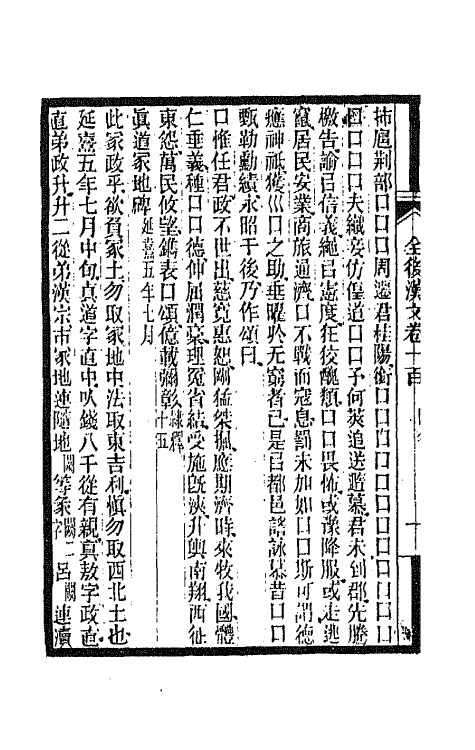 全後漢文卷一百
柿扈荆部口口口周遼君桂陽銜口口口口口口口口口口
口口口口夫織妾仿偟道口口予何莫追送蹈慕君未到郡先騰
檄告諭㠯信義繩㠯憲度狂狡醜類口口畏怖或豫降服或走逃
竄居民安業商旅通濟口不戰而寇息罰未加如口口斯可謂德
應神祇獲巛口之助垂曜於无窮者已是㠯都邑謠詠慕昔口口
甄勒勳績永昭于後乃作頌曰
口惟任君政不世出慈寬惠恕剛猛桀摡應期濟時來牧我國體
仁垂義種口口德伸屈潤槀理冤省結受施旣浹升輿南翔西征
東怨萬民攸望鐫表口頌億載彌彰隸釋十五
眞道冢地碑延熹五年七月
此冢政乎欲買冢土勿取冢地中法取東吉利愼勿取西北土也
延熹五年七月中旬眞道字直中㕥錢八千從有親眞敖字政直
直弟政升升二從弟漢宗市冢地連隨地闕等篆闕二呂闕連瀆